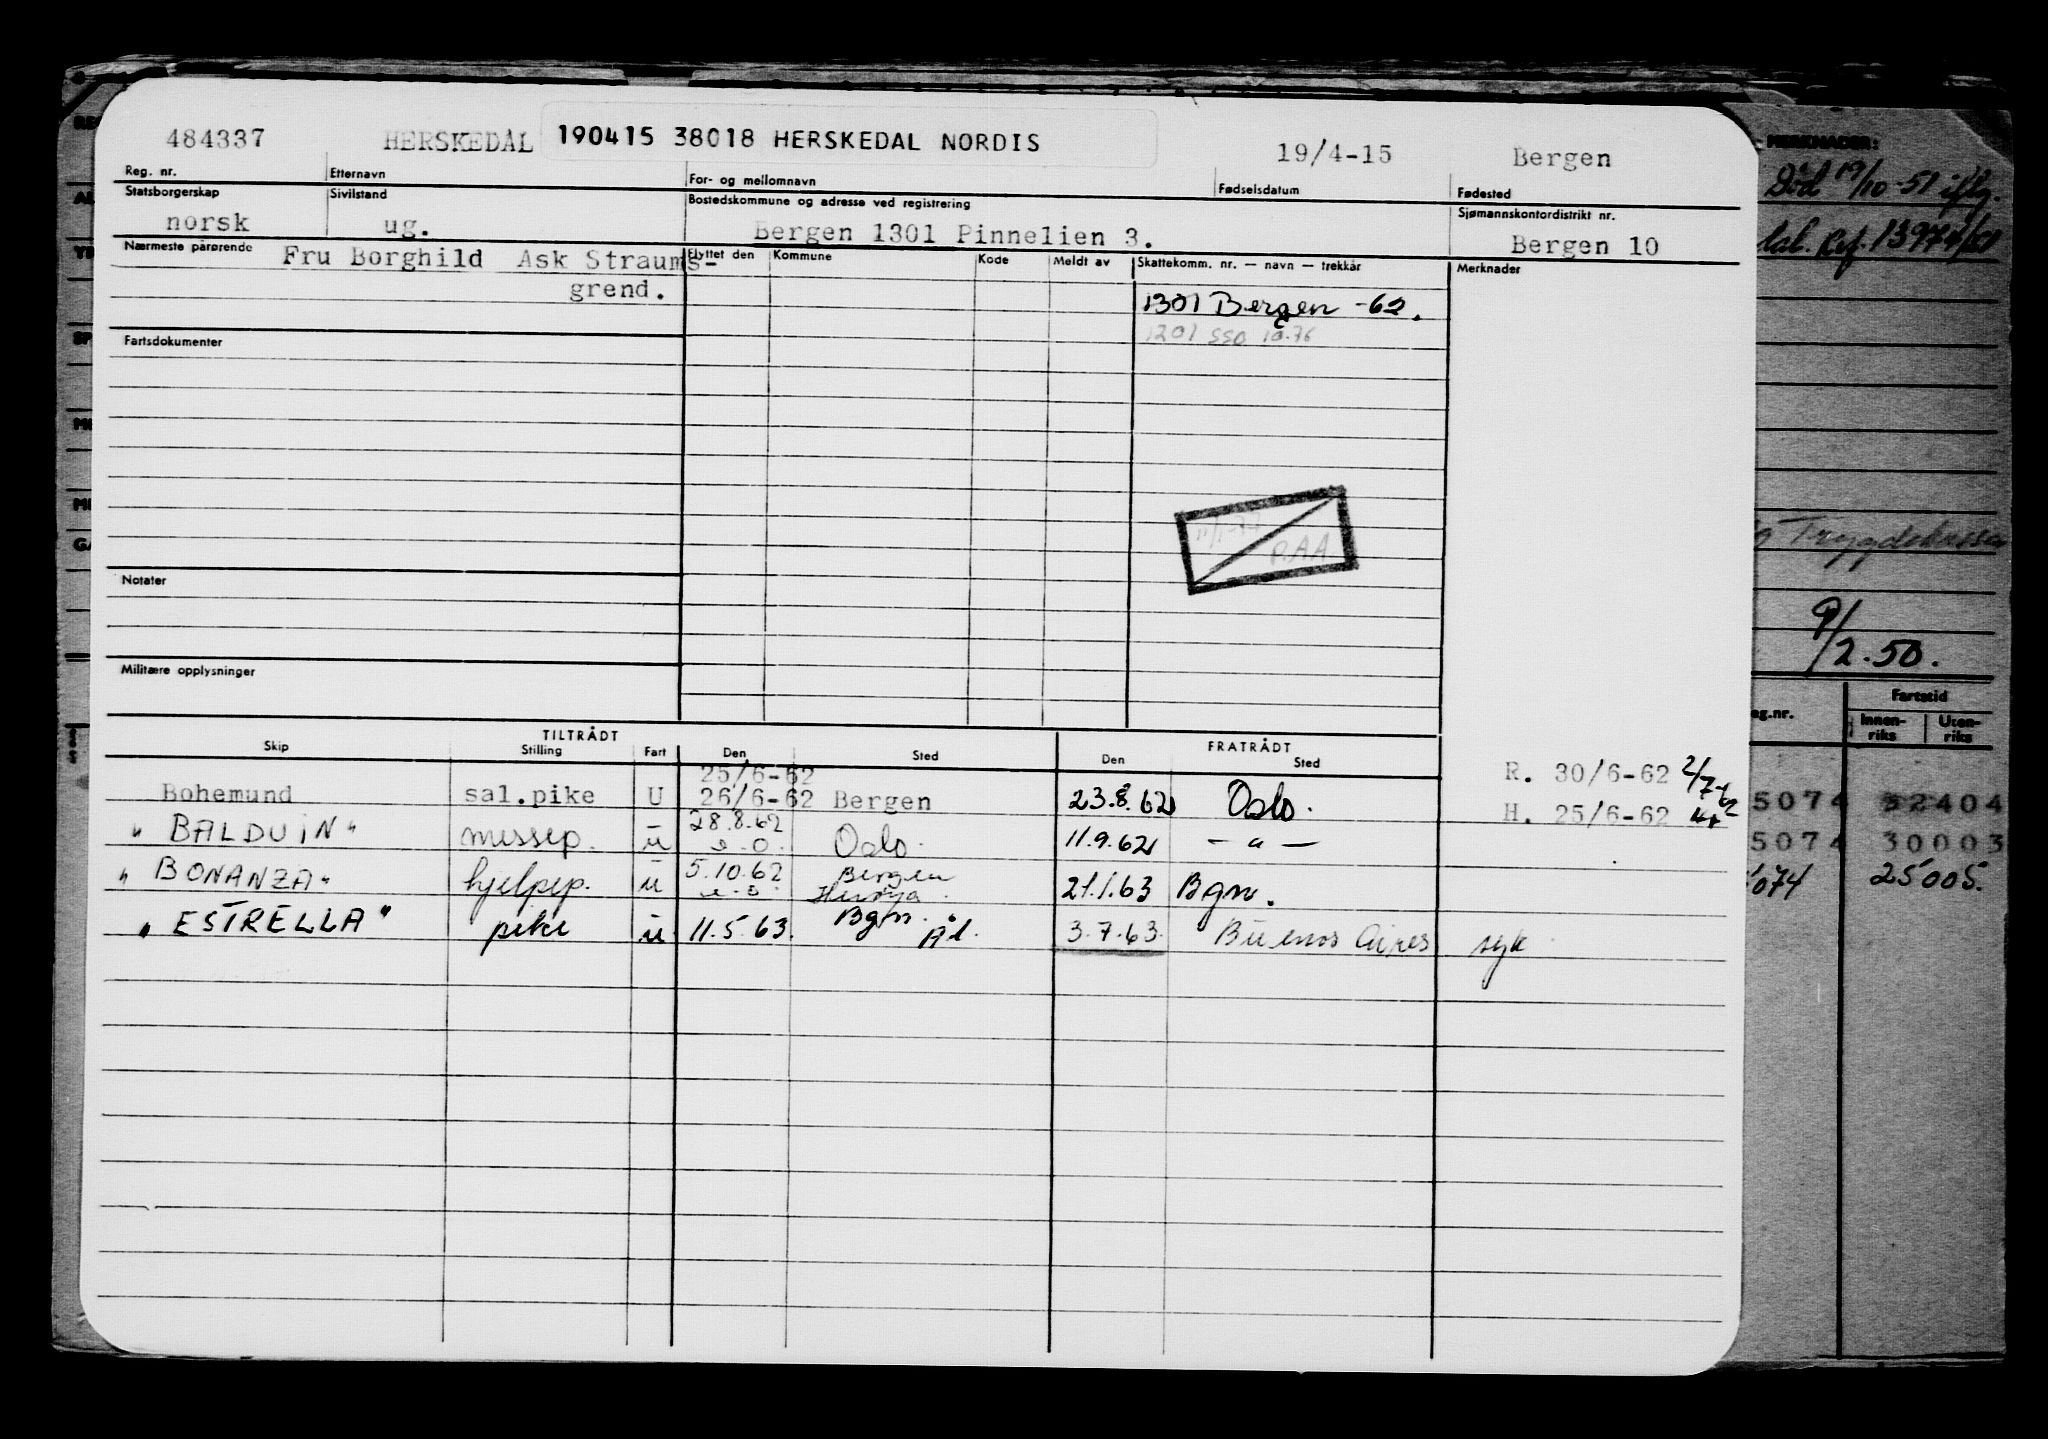 484337 HERSKEDAL 190415 38018 HERSKEDAL NORDIS 19/4-15 Bergen
Reg. nr. Etternavn For- og mellomnavn Fødselsdatum Fødested
Statsborgerskap Sivilstand Bostedskommune og adresse ved registrering Sjømannskontordistrikt nr.
norsk ug. Bergen 1301 Pinnelien 3. Bergen 10
Nærmeste pårørende Fru Borghild Ask Straums- Flyttet den Kommune Kode Meldt av Skattekomm. nr. — navn — trekkår Merknader
grend. 1301 Bergen -62.
1201 SSO 10.76
Fartsdokumenter
P.A.A.
Notater
Militære opplysninger
TILTRÅDT FRATRÅDT
Skip Stilling Fart Den Sted Den Sted
25/6-62 R. 30/6-62 2/7-62
Bohemund sal.pike U 26/6-62 Bergen 23.8.62 Oslo. H. 25/6-62
28.8.62
" BALDUIN " messep. u Oslo. 11.9.62 — " —
5.10.62 Bergen
" BONANZA " hjelpep. u Herøya 21.1.63 Bgn.
" ESTRELLA " pike u 11.5.63. Bgn. Ål. 3.7.63. Buenos Aires syk
MERKNADER:
Død 19/10-51 iflg.
Ref. 13974/51
Trygdekassen
9/2.50.
Fartstid
Innen-riks Uten-riks
5074 52404
5074 30003
074 25005.